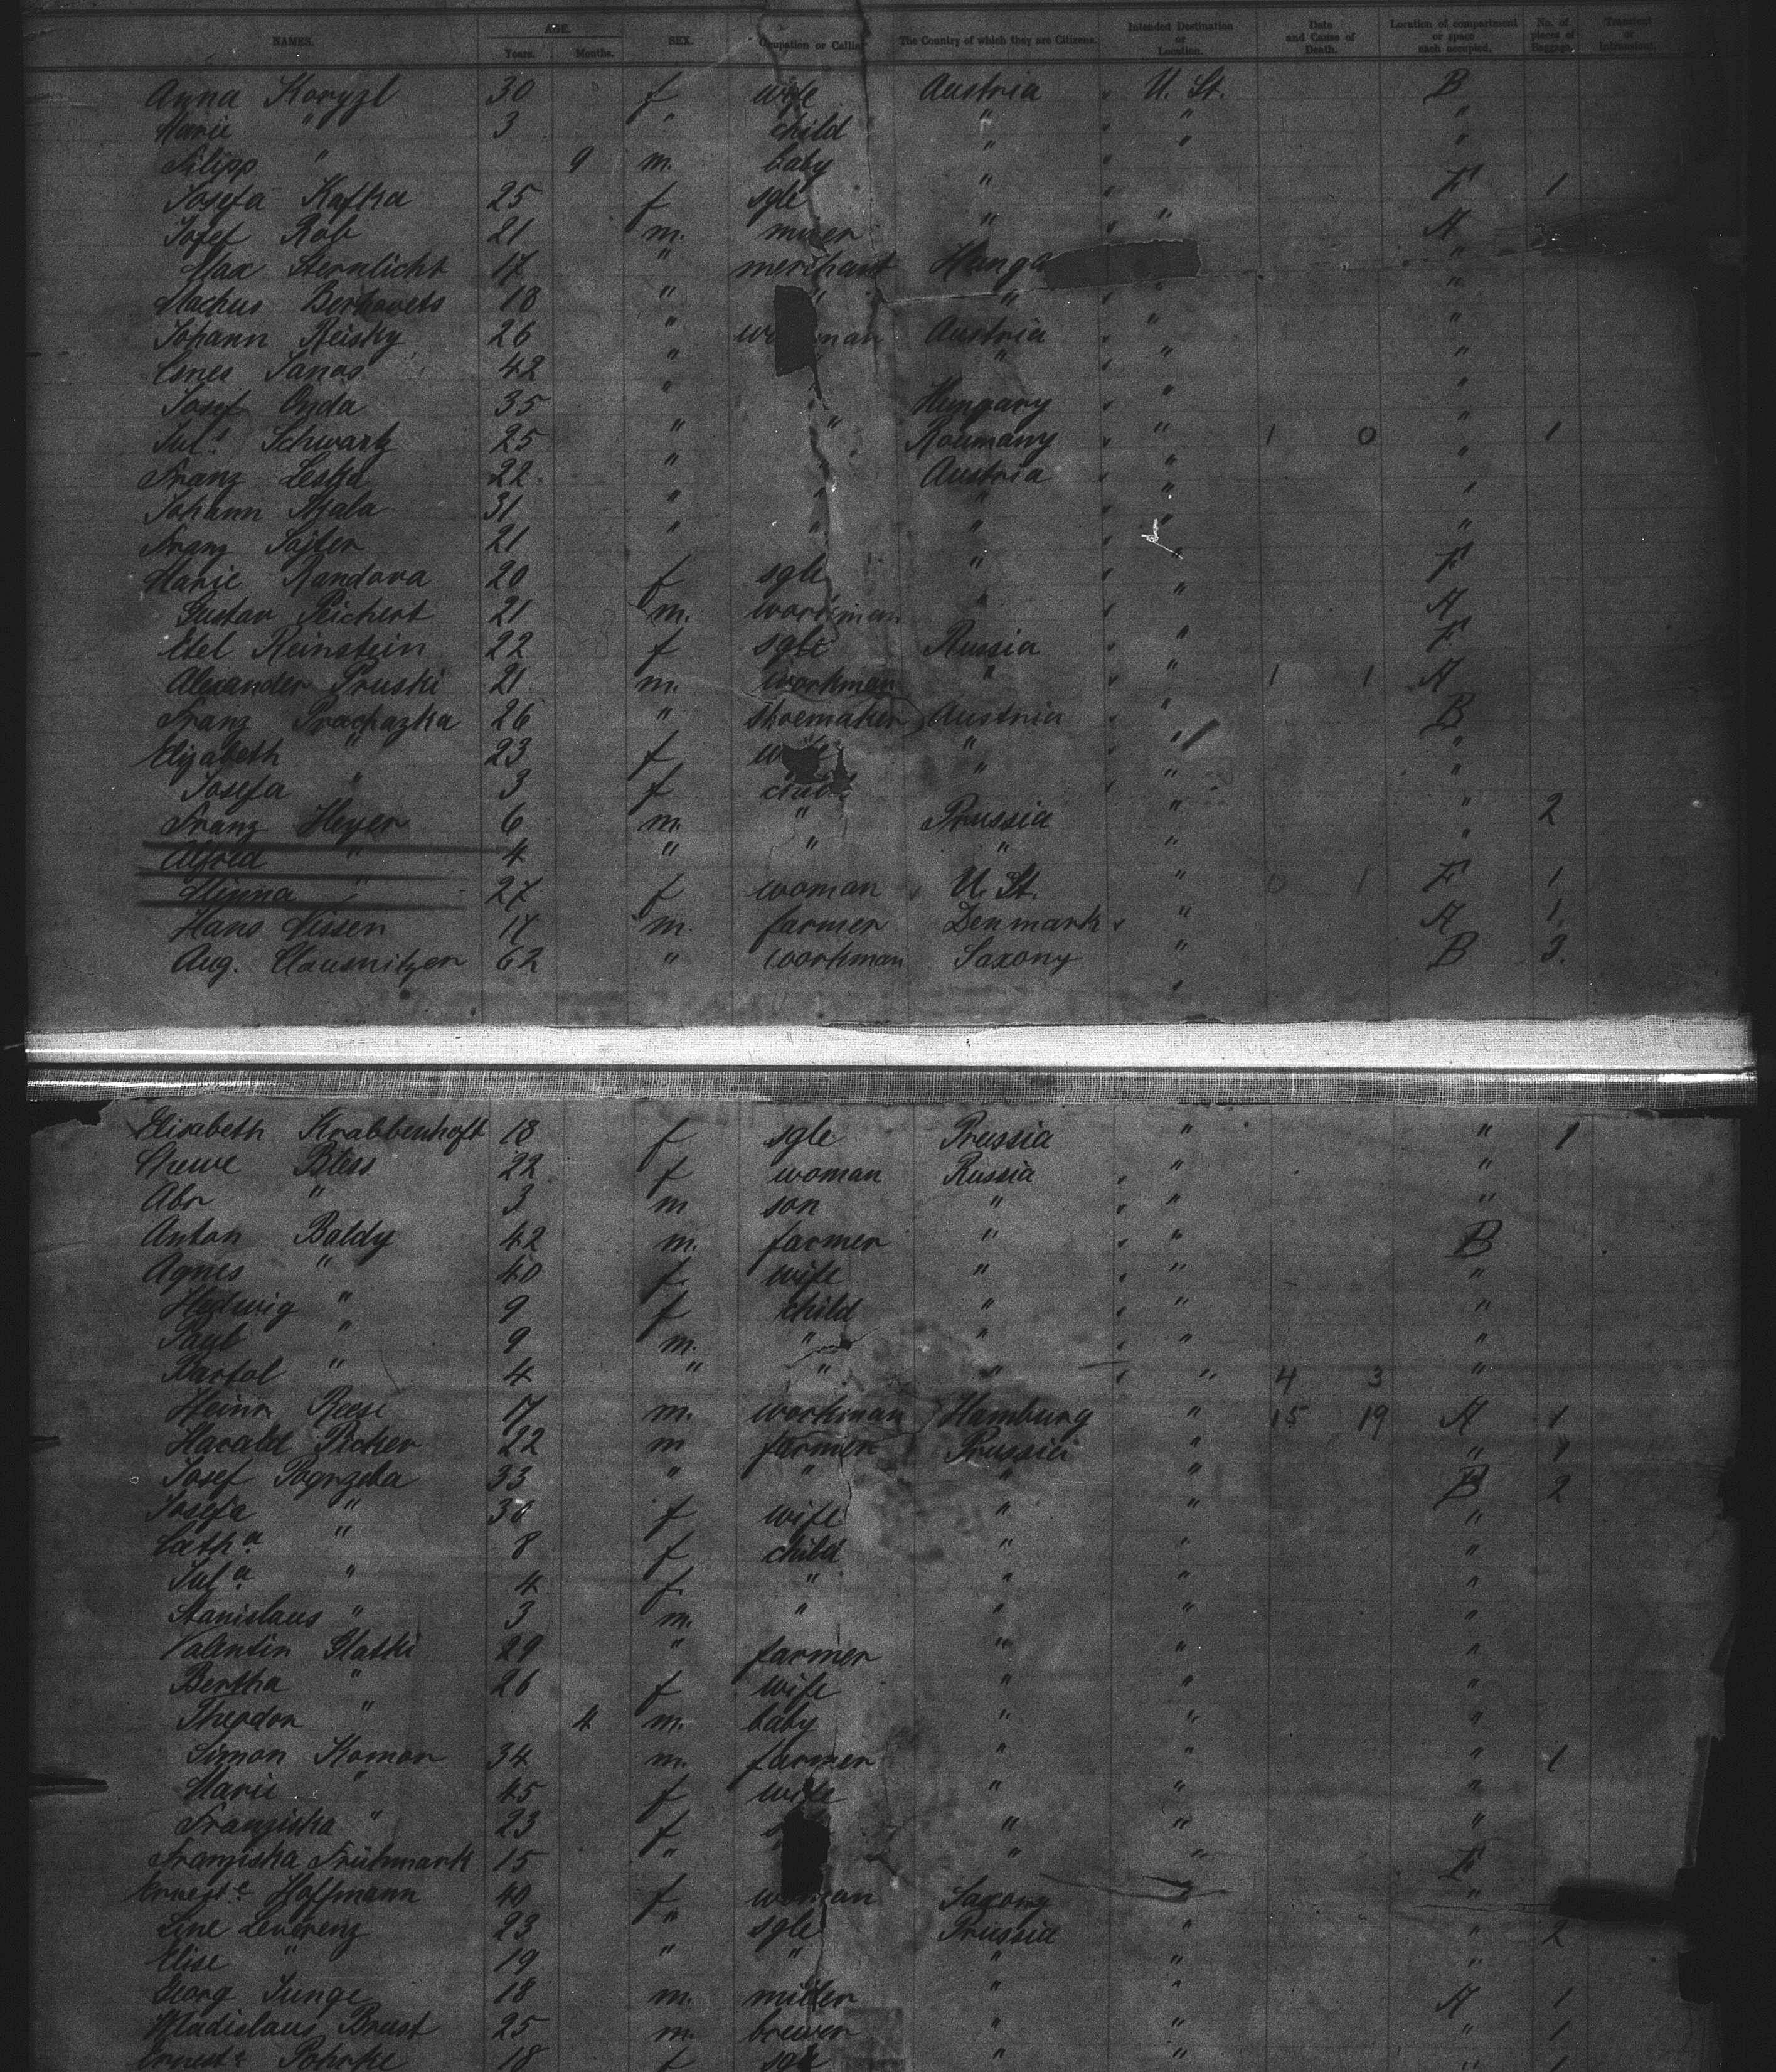 NAMES. AGE. Years. Months. SEX. Occupation or Calling The Country of which they are Citizens. Intended Destination or Location. Date and Cause of Death. Location of compartment or space each occupied. No. of pieces of Baggage. Transient or Intransient.
Anna Koryzl 30 f wife Austria U. St. B
Marie " 3 " child " " "
Filipp " 9 m. baby " " "
Josefa Kafka 25 f sgle " F 1
Josef Rob 21 m. " " A
Max Sternlicht 17 " merchant Hunga "
Berkovets 18 " " " " "
Johann Reisky 26 " Austria " "
Janos 42 " " " "
Josef Onda 35 " " Hungary " "
Jul.s Schwartz 25 " " Roumany " 1 0 " 1
Franz Leska 22. " " Austria " "
Johann Skala 31 " " " " "
Franz Sajter 21 " " " "
Marie Randova 20 f sgle " " F
Gustav Reichert 21 m. workman " " A
Etel Reinstein 22 f sgle Russia " F
Alexander Pruski 21 m. workman " " 1 1 A
Franz Prachazka 26 " shoemaker Austria " B
Elizabeth " 23 f " " "
Josefa " 3 f " " "
Franz Heyer 6 m. " Prussia " " 2
Alfred " 4 " " " " "
Minna " 27 f woman U. St. " 0 1 F 1
Hans Nissen 17 m. farmer Denmark " A 1.
Aug. Clausnitzer 62 " workman Saxony " B 3.
Elisabeth Krabbenhoft 18 f sgle Prussia " " 1
Bless 22 f woman Russia " "
Abr " 3 m son " " "
Anton Baldy 42 m. farmer " " B
Agnes " 40 f. wife " " "
Hedwig " 9 f child " " "
Paul " 9 m. " " " "
Bartol " 4 " " " " 4 3 "
Heinr Reese 17 m. workman Hamburg " 15 19 A 1
Harald Picker 22 m farmer Prussia " " 1
Josef Pogrzeba 33 " " " " B 2
Josefa " 30 f wife " " "
Cath.a " 8 f child " " "
Jul.a " 4 f. " " " "
Stanislaus " 3 m. " " " "
Valentin Glatki 29 " farmer " " "
Bertha " 26 f wife " " "
Theodor " 4 m. baby " " "
Simon Komor 34 m. farmer " " " 1
Marie " 45 f wife " " "
Franziska " 23 f " " "
Franziska Frühmark 15 " " " F
Ernest.e Hoffmann 40 f woman Saxony "
Line Leverenz 23 " sgle Prussia " " 2
Elise " 19 " " " " "
Georg Junge 18 m. miller " " A 1
Wladislaus Brust 25 m. brewer " " " 1
Ernest.e 18 f sgle " " " 1